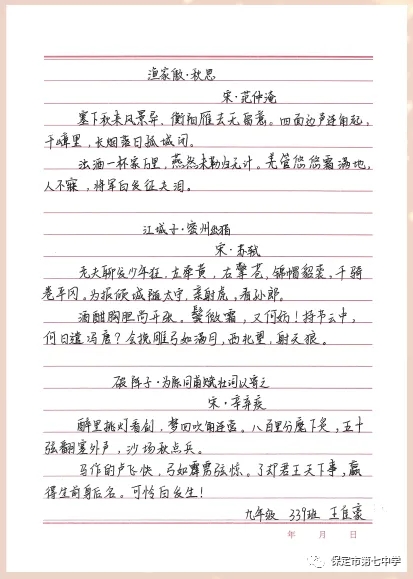 渔家傲·秋思
宋·范仲淹
塞下秋来风景异，衡阳雁去无留意。四面边声连角起，
千嶂里，长烟落日孤城闭。
浊酒一杯家万里，燕然未勒归无计。羌管悠悠霜满地，
人不寐，将军白发征夫泪。
江城子·密州出猎
宋·苏轼
老夫聊发少年狂，左牵黄，右擎苍，锦帽貂裘，千骑
卷平冈。为报倾城随太守，亲射虎，看孙郎。
酒酣胸胆尚开张。鬓微霜，又何妨！持节云中，
何日遣冯唐？会挽雕弓如满月，西北望，射天狼。
破阵子·为陈同甫赋壮词以寄之
宋·辛弃疾
醉里挑灯看剑，梦回吹角连营。八百里分麾下炙，五十
弦翻塞外声，沙场秋点兵。
马作的卢飞快，弓如霹雳弦惊。了却君王天下事，赢
得生前身后名。可怜白发生！
九年级 339班 王佳豪
年 月 日
保定市第七中学